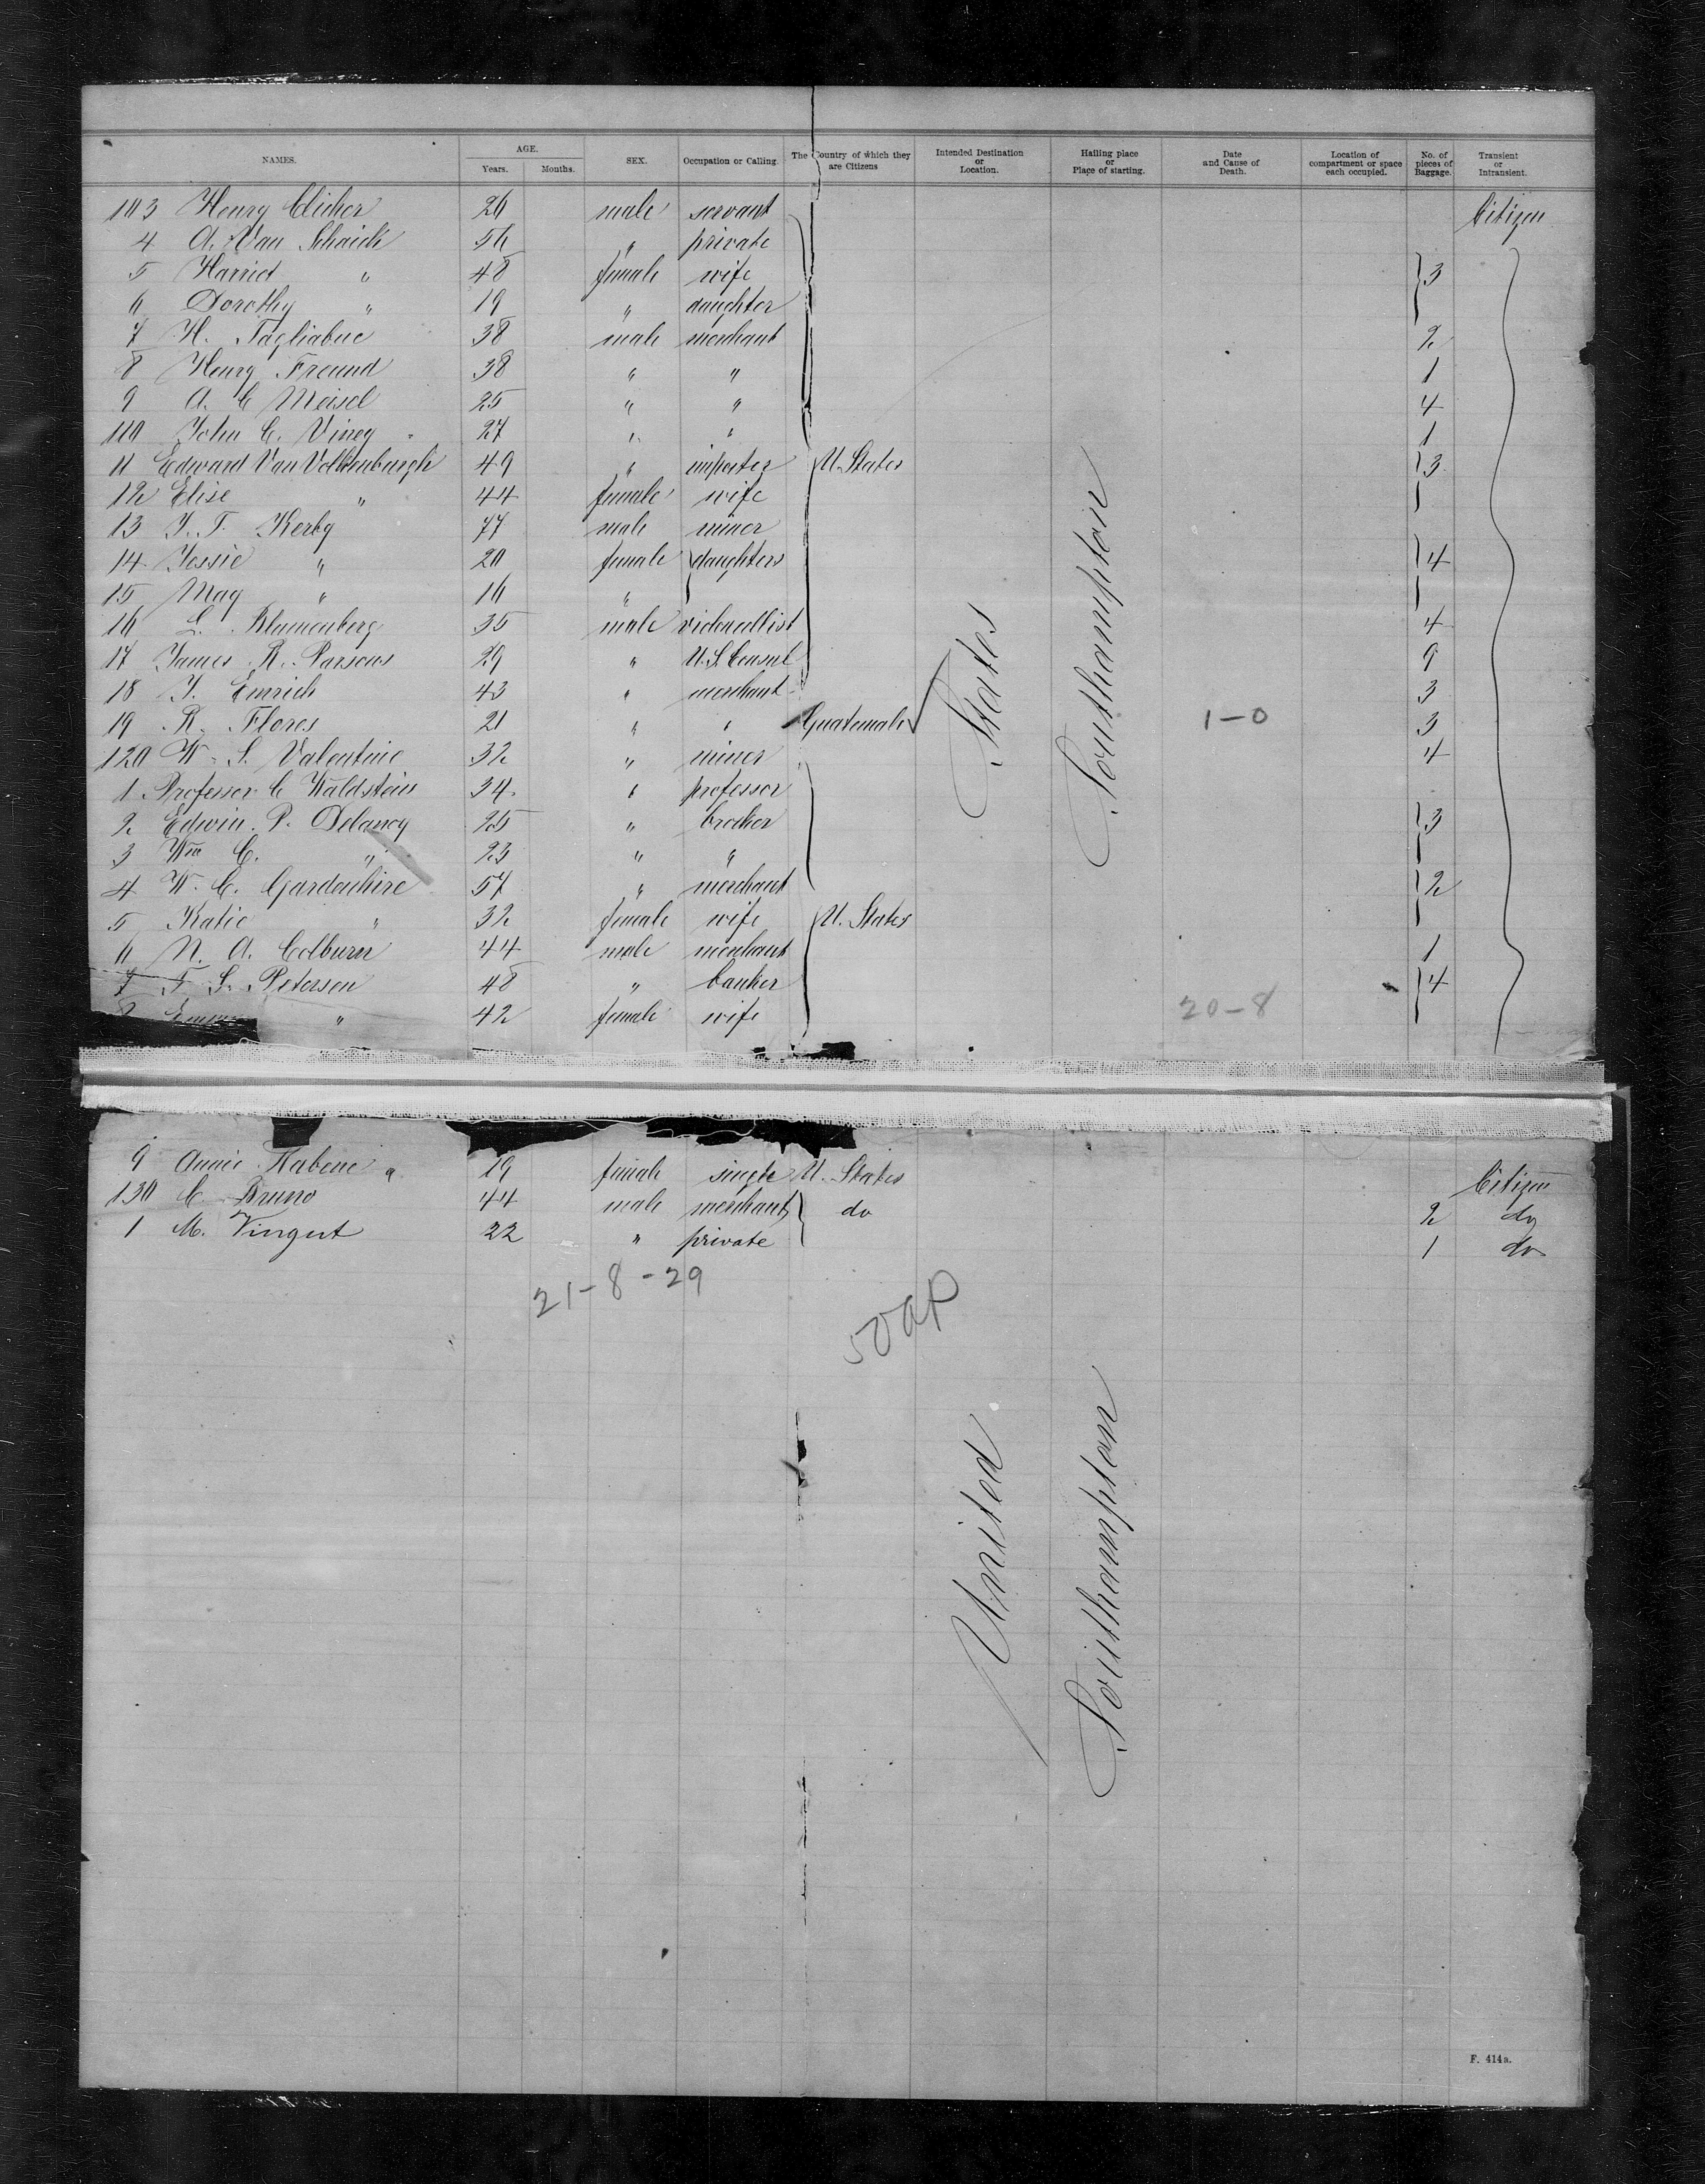 NAMES. AGE. Years. Months. SEX. Occupation or Calling. The Country of which they are Citizens Intended Destination or Location. Hailing place or Place of starting. Date and Cause of Death. Location of compartment or space each occupied. No. of pieces of Baggage. Transient or Intransient.
103 Henry 26 male servant Citizen
4 A. Van Schaick 56 " private
5 Harriet " 48 female wife 3
6 Dorothy " 19 " daughter
7 H. Tagliabue 38 male merchant 2
8 Henry Freund 38 " " 1
9 A. C Meisel 25 " " 4
110 John C. Viney 27 " " 1
11 Edward Van Volkenburgh 49 " importer U. States 3
12 Elise " 44 female wife
13 J. T. Kerby 77 male miner
14 Jessie " 20 female daughters 4
15 May " 16 "
16 L. Blumenberg 35 male violoncellist 4
17 James R. Parsons 29 " U.S. Consul 9
18 J. Emrich 43 " merchant 3
19 R. Flores 21 " " Guatemala 1-0 3
120 W. S. Valentine 32 " miner 4
1 Professor C Waldstein 34 " professor
2 Edwin P. Delancy 25 " broker 3
3 Wm C. " 23 " "
4 W. C. Gardenhire 57 " merchant 2
5 Katie " 32 female wife U. States
6 N. A. Colburn 44 male merchant 1
7 F. S. Petersen 48 " banker 4
8 Emma " 42 female wife 20-8
States
Southampton
9 Annie 19 female single U. States Citizen
130 C. Bruno 44 male merchant do 2 do
1 M. Vingut 22 " private 1 do
21-8-29
United
Southampton
F. 414a.